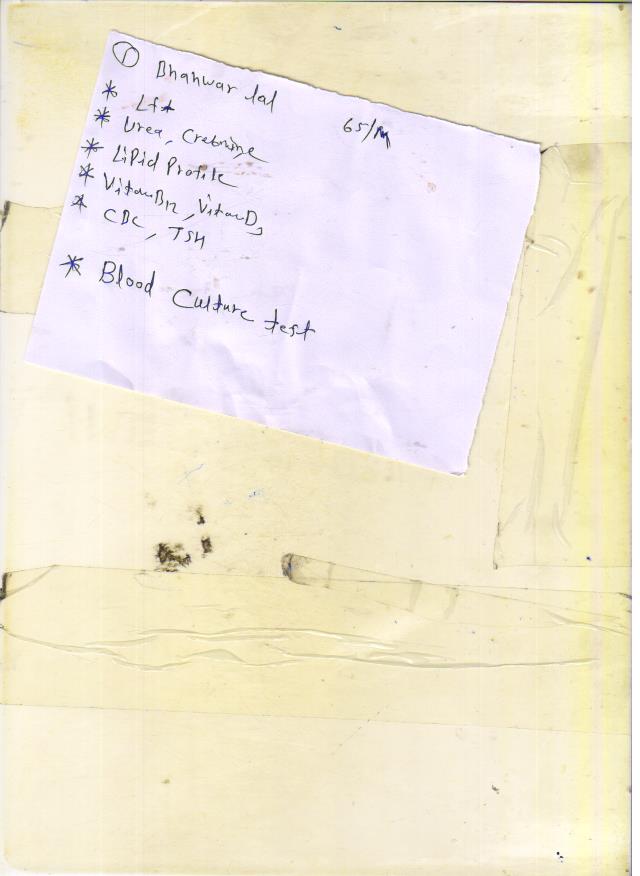 ① Bhanwar lal 65/M
* Lft
* Urea, Creatnine
* LiPid Profile
* Vitam B12, Vitam D3
* CBC, TSH
* Blood Culture test